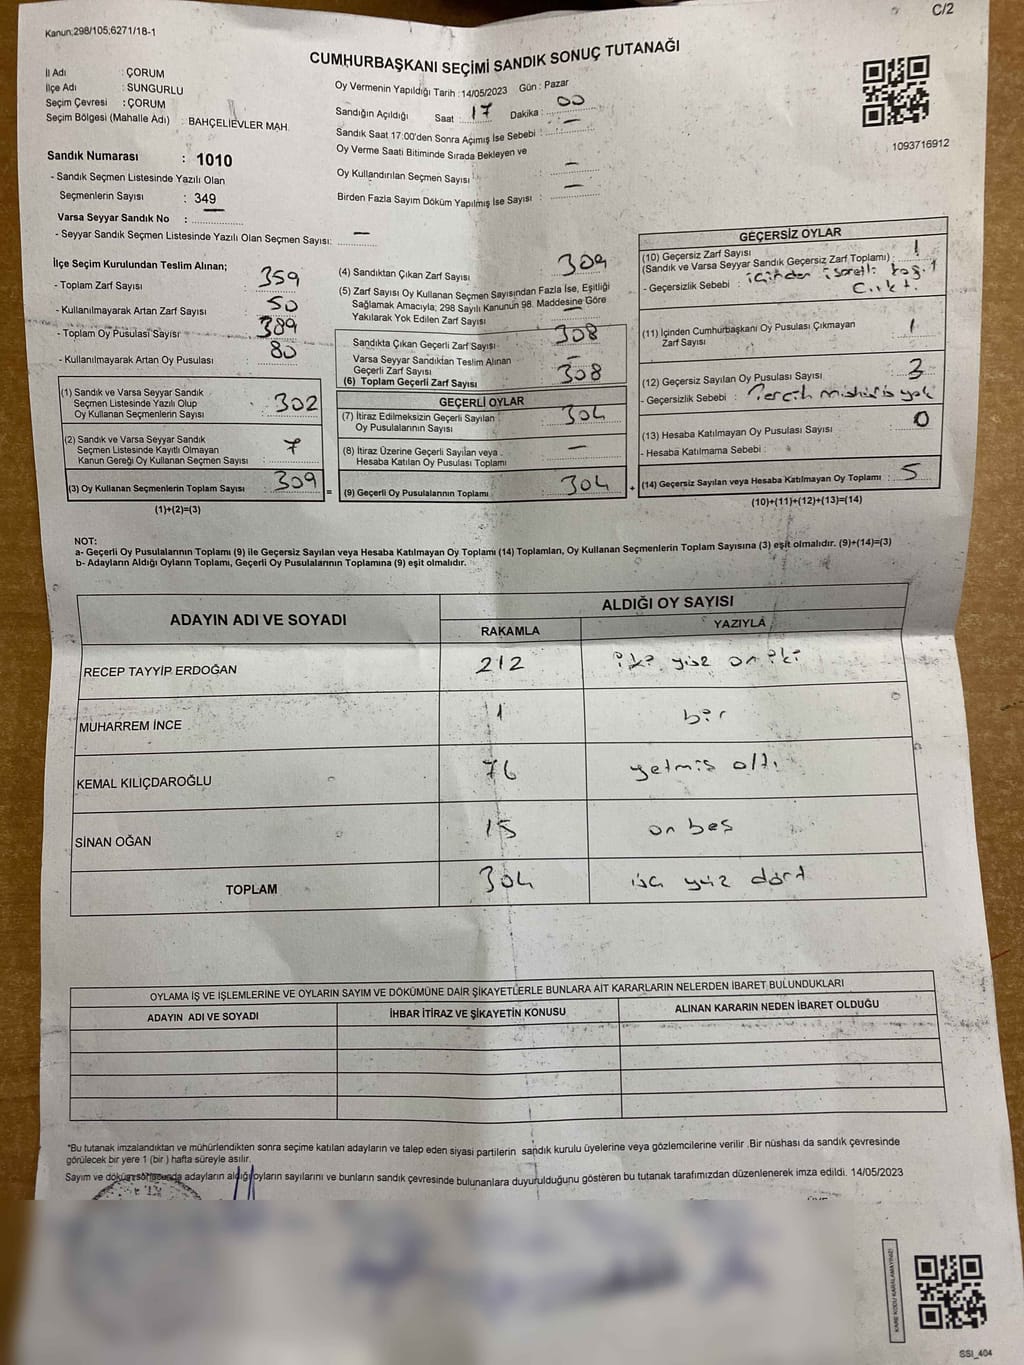 C/2
Kanun;298/105;6271/18-1
CUMHURBAŞKANI SEÇİMİ SANDIK SONUÇ TUTANAĞI
İl Adı : ÇORUM
İlçe Adı : SUNGURLU
Seçim Çevresi : ÇORUM
Seçim Bölgesi (Mahalle Adı) : BAHÇELİEVLER MAH.
Sandık Numarası : 1010
- Sandık Seçmen Listesinde Yazılı Olan
Seçmenlerin Sayısı : 349
Varsa Seyyar Sandık No :
- Seyyar Sandık Seçmen Listesinde Yazılı Olan Seçmen Sayısı: —
Oy Vermenin Yapıldığı Tarih : 14/05/2023 Gün : Pazar
Sandığın Açıldığı Saat : 17 Dakika : 00
Sandık Saat 17:00'den Sonra Açımış İse Sebebi : —
Oy Verme Saati Bitiminde Sırada Bekleyen ve
Oy Kullandırılan Seçmen Sayısı : —
Birden Fazla Sayım Döküm Yapılmış İse Sayısı : —
1093716912
İlçe Seçim Kurulundan Teslim Alınan;
- Toplam Zarf Sayısı : 359
- Kullanılmayarak Artan Zarf Sayısı : 50
- Toplam Oy Pusulası Sayısı : 389
- Kullanılmayarak Artan Oy Pusulası : 80
(1) Sandık ve Varsa Seyyar Sandık
Seçmen Listesinde Yazılı Olup
Oy Kullanan Seçmenlerin Sayısı : 302
(2) Sandık ve Varsa Seyyar Sandık
Seçmen Listesinde Kayıtlı Olmayan
Kanun Gereği Oy Kullanan Seçmen Sayısı : 7
(3) Oy Kullanan Seçmenlerin Toplam Sayısı : 309
(1)+(2)=(3)
=
(4) Sandıktan Çıkan Zarf Sayısı : 309
(5) Zarf Sayısı Oy Kullanan Seçmen Sayısından Fazla İse, Eşitliği
Sağlamak Amacıyla, 298 Sayılı Kanunun 98. Maddesine Göre
Yakılarak Yok Edilen Zarf Sayısı : —
Sandıkta Çıkan Geçerli Zarf Sayısı : 308
Varsa Seyyar Sandıktan Teslim Alınan
Geçerli Zarf Sayısı : —
(6) Toplam Geçerli Zarf Sayısı : 308
GEÇERLİ OYLAR
(7) İtiraz Edilmeksizin Geçerli Sayılan
Oy Pusulalarının Sayısı : 304
(8) İtiraz Üzerine Geçerli Sayılan veya
Hesaba Katılan Oy Pusulası Toplamı : —
(9) Geçerli Oy Pusulalarının Toplamı : 304
+
GEÇERSİZ OYLAR
(10) Geçersiz Zarf Sayısı
(Sandık ve Varsa Seyyar Sandık Geçersiz Zarf Toplamı) : 1
- Geçersizlik Sebebi : içinden işaretli kağ.1
Çıkt.
(11) İçinden Cumhurbaşkanı Oy Pusulası Çıkmayan
Zarf Sayısı : 1
(12) Geçersiz Sayılan Oy Pusulası Sayısı : 3
- Geçersizlik Sebebi : Tercih yok
(13) Hesaba Katılmayan Oy Pusulası Sayısı : 0
- Hesaba Katılmama Sebebi :
(14) Geçersiz Sayılan veya Hesaba Katılmayan Oy Toplamı : 5
(10)+(11)+(12)+(13)=(14)
NOT:
a- Geçerli Oy Pusulalarının Toplamı (9) ile Geçersiz Sayılan veya Hesaba Katılmayan Oy Toplamı (14) Toplamları, Oy Kullanan Seçmenlerin Toplam Sayısına (3) eşit olmalıdır. (9)+(14)=(3)
b- Adayların Aldığı Oyların Toplamı, Geçerli Oy Pusulalarının Toplamına (9) eşit olmalıdır.
ADAYIN ADI VE SOYADI ALDIĞI OY SAYISI
RAKAMLA YAZIYLA
RECEP TAYYİP ERDOĞAN 212 iki yüz on iki
MUHARREM İNCE 1 bir
KEMAL KILIÇDAROĞLU 76 yetmis altı
SİNAN OĞAN 15 on bes
TOPLAM 304 yüz dört
OYLAMA İŞ VE İŞLEMLERİNE VE OYLARIN SAYIM VE DÖKÜMÜNE DAİR ŞİKAYETLERLE BUNLARA AİT KARARLARIN NELERDEN İBARET BULUNDUKLARI
ADAYIN ADI VE SOYADI İHBAR İTİRAZ VE ŞİKAYETİN KONUSU ALINAN KARARIN NEDEN İBARET OLDUĞU
*Bu tutanak imzalandıktan ve mühürlendikten sonra seçime katılan adayların ve talep eden siyasi partilerin sandık kurulu üyelerine veya gözlemcilerine verilir .Bir nüshası da sandık çevresinde
görülecek bir yere 1 (bir ) hafta süreyle asılır.
Sayım ve döküm sonucunda adayların aldığı oyların sayılarını ve bunların sandık çevresinde bulunanlara duyurulduğunu gösteren bu tutanak tarafımızdan düzenlenerek imza edildi. 14/05/2023
KARE KODU KARALAMAYINIZ!
SSI_404